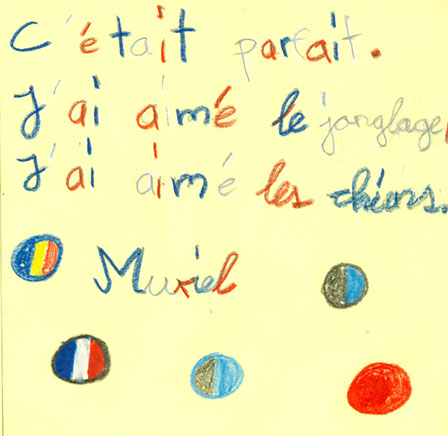 C'était parfait.
J'ai aimé le jonglage,
J'ai aimé les chiens.
Muriel